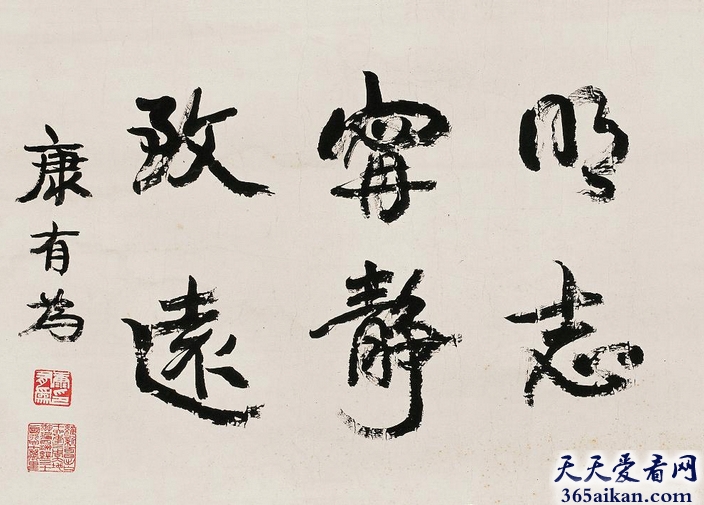 明志
甯静
致遠
康有為
天天爱看网
365aikan.com